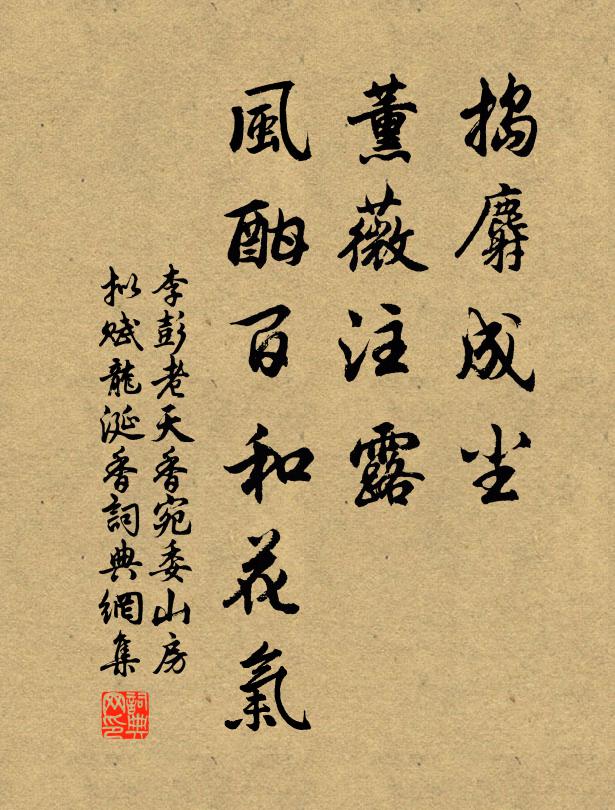 搗麝成尘
薰薇注露
風酣百和花氣
李彭老天香宛委山房
拟赋龍涎香詞典網集
詞典网印